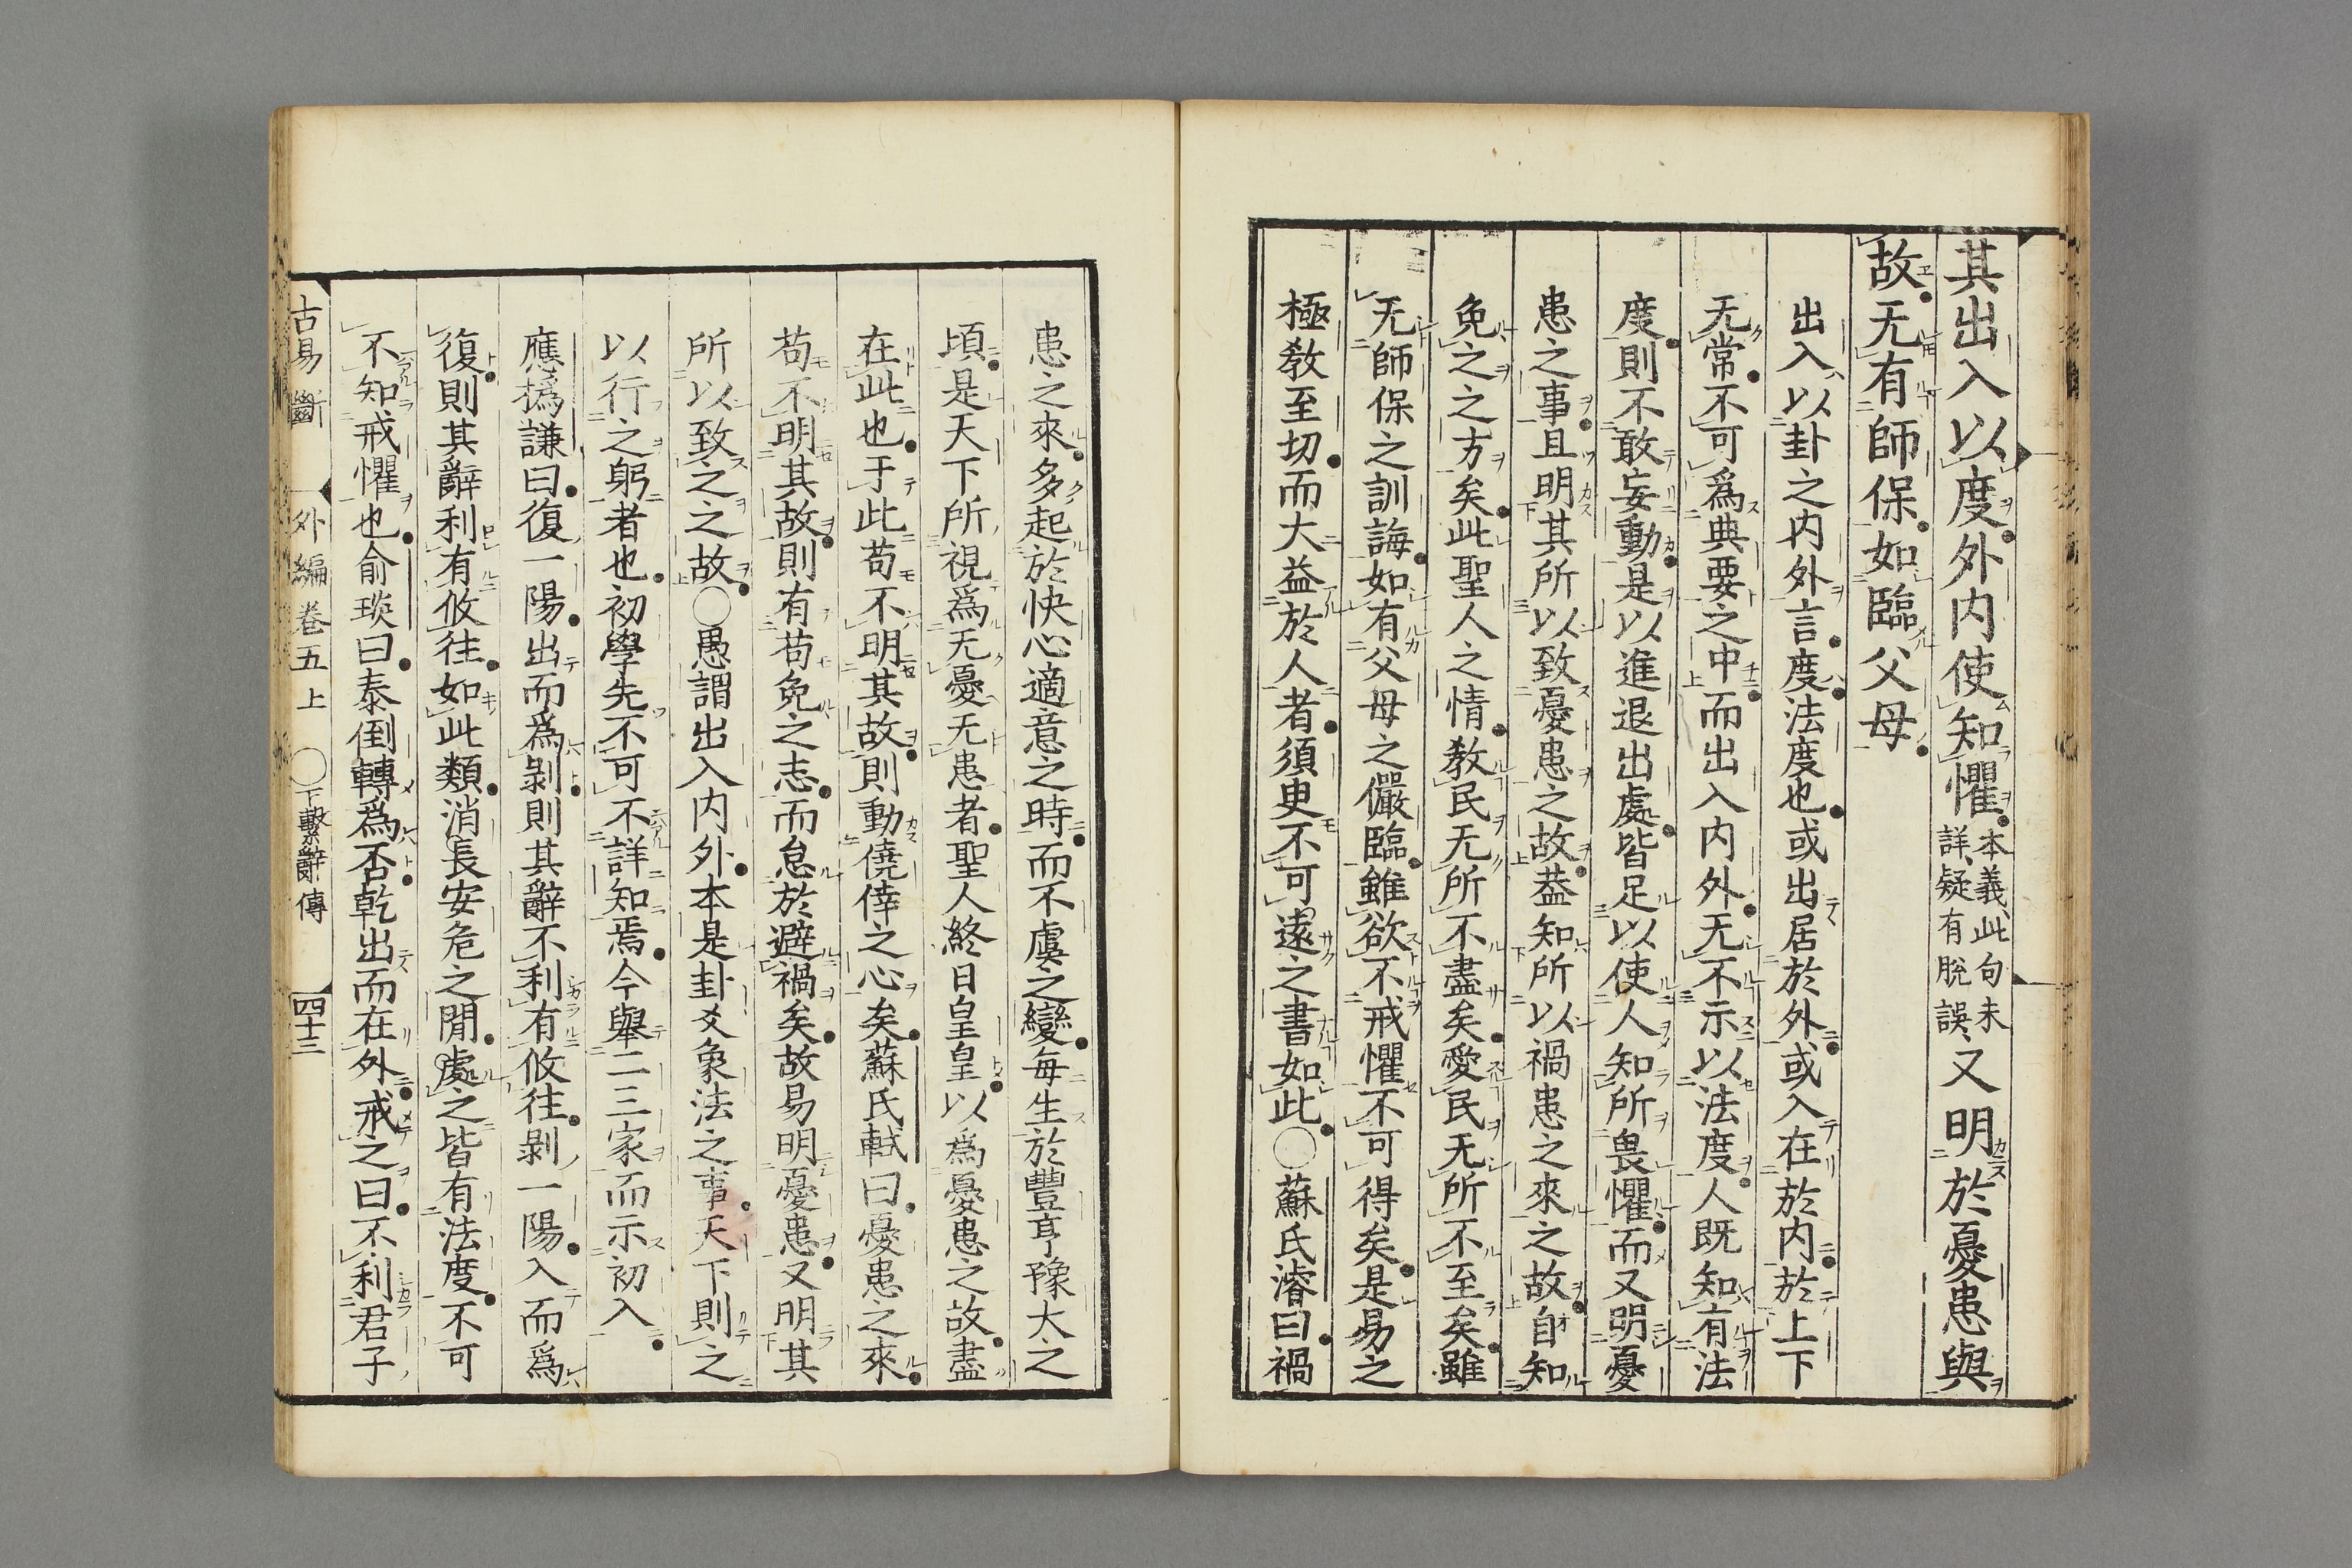 其出入以度外内使知懼本義此句未詳疑有脫誤又明於憂患與
故无有師保如臨父母
出入以卦之内外言度法度也或出居於外或入在於内於上下
无常不可爲典要之中而出入内外无不示以法度人既知有法
度則不敢妄動是以進退出處皆足以使人知所畏懼而又明憂
患之事且明其所以致憂患之故葢知所以禍患之來之故自知
免之之方矣此聖人之情敎民无所不盡矣愛民无所不至矣雖
无師保之訓誨如有父母之儼臨雖欲不戒懼不可得矣是易之
極敎至切而大益於人者須臾不可遠之書如此〇蘇氏濬曰禍
患之來多起於快心適意之時而不虞之變每生於豐亨豫大之
頃是天下所視爲无憂无患者聖人終日皇皇以爲憂患之故盡
在此也于此苟不明其故則動僥倖之心矣蘇氏軾曰憂患之來
苟不明其故則有苟免之志而怠於避禍矣故易明憂患又明其
所以致之之故〇愚謂出入内外本是卦爻象法之事天下則之
以行之躬者也初學先不可不詳知焉今舉二三家而示初入
應撝謙曰復一陽出而爲剝則其辭不利有攸往剝一陽入而爲
復則其辭利有攸往如此類消長安危之閒處之皆有法度不可
不知戒懼也俞琰曰泰倒轉爲否乾出而在外戒之曰不利君子
古易斷　外編卷五上　〇下繫辭傳　四十三